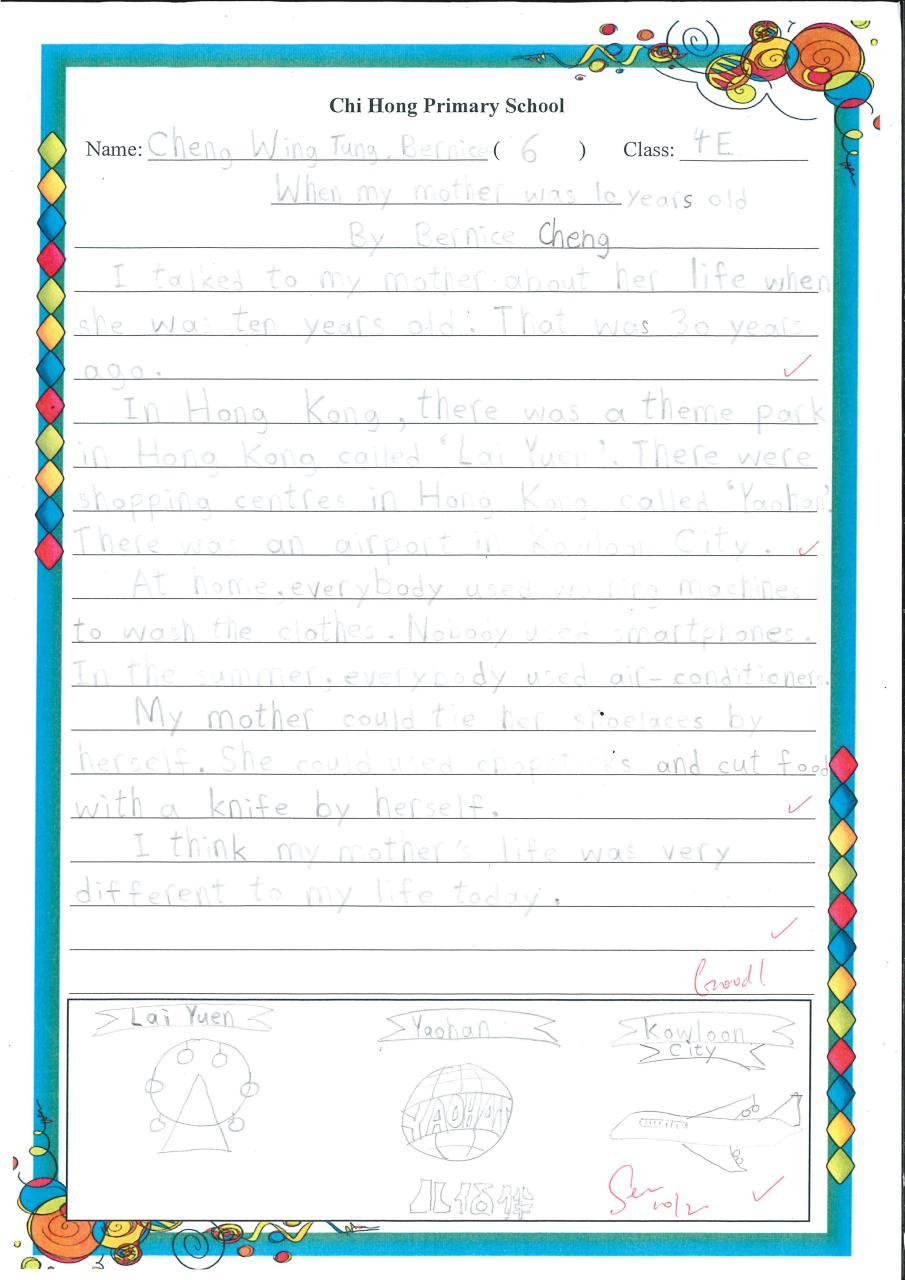 Chi Hong Primary School
Name: Cheng Wing Tung, Bernice ( 6 ) Class: 4E
When my mother was 10 years old
By Bernice Cheng
I talked to my mother about her life when
she was ten years old. That was 30 years
ago.
In Hong Kong, there was a theme park
in Hong Kong called 'Lai Yuen'. There were
shopping centres in Hong Kong called 'Yaohan'.
There was an airport in Kowloon City.
At home, everybody used washing machines
to wash the clothes. Nobody used smartphones.
In the summer, everybody used air-conditioners.
My mother could tie her shoelaces by
herself. She could used chopsticks and cut food
with a knife by herself.
I think my mother's life was very
different to my life today.
Good!
Lai Yuen
Yaohan
Kowloon
City
YAOHAN
八佰伴
10/2